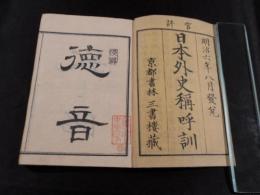 官許
明治六年八月發兌
日本外史稱呼訓
京都書林 三書樓藏
德音